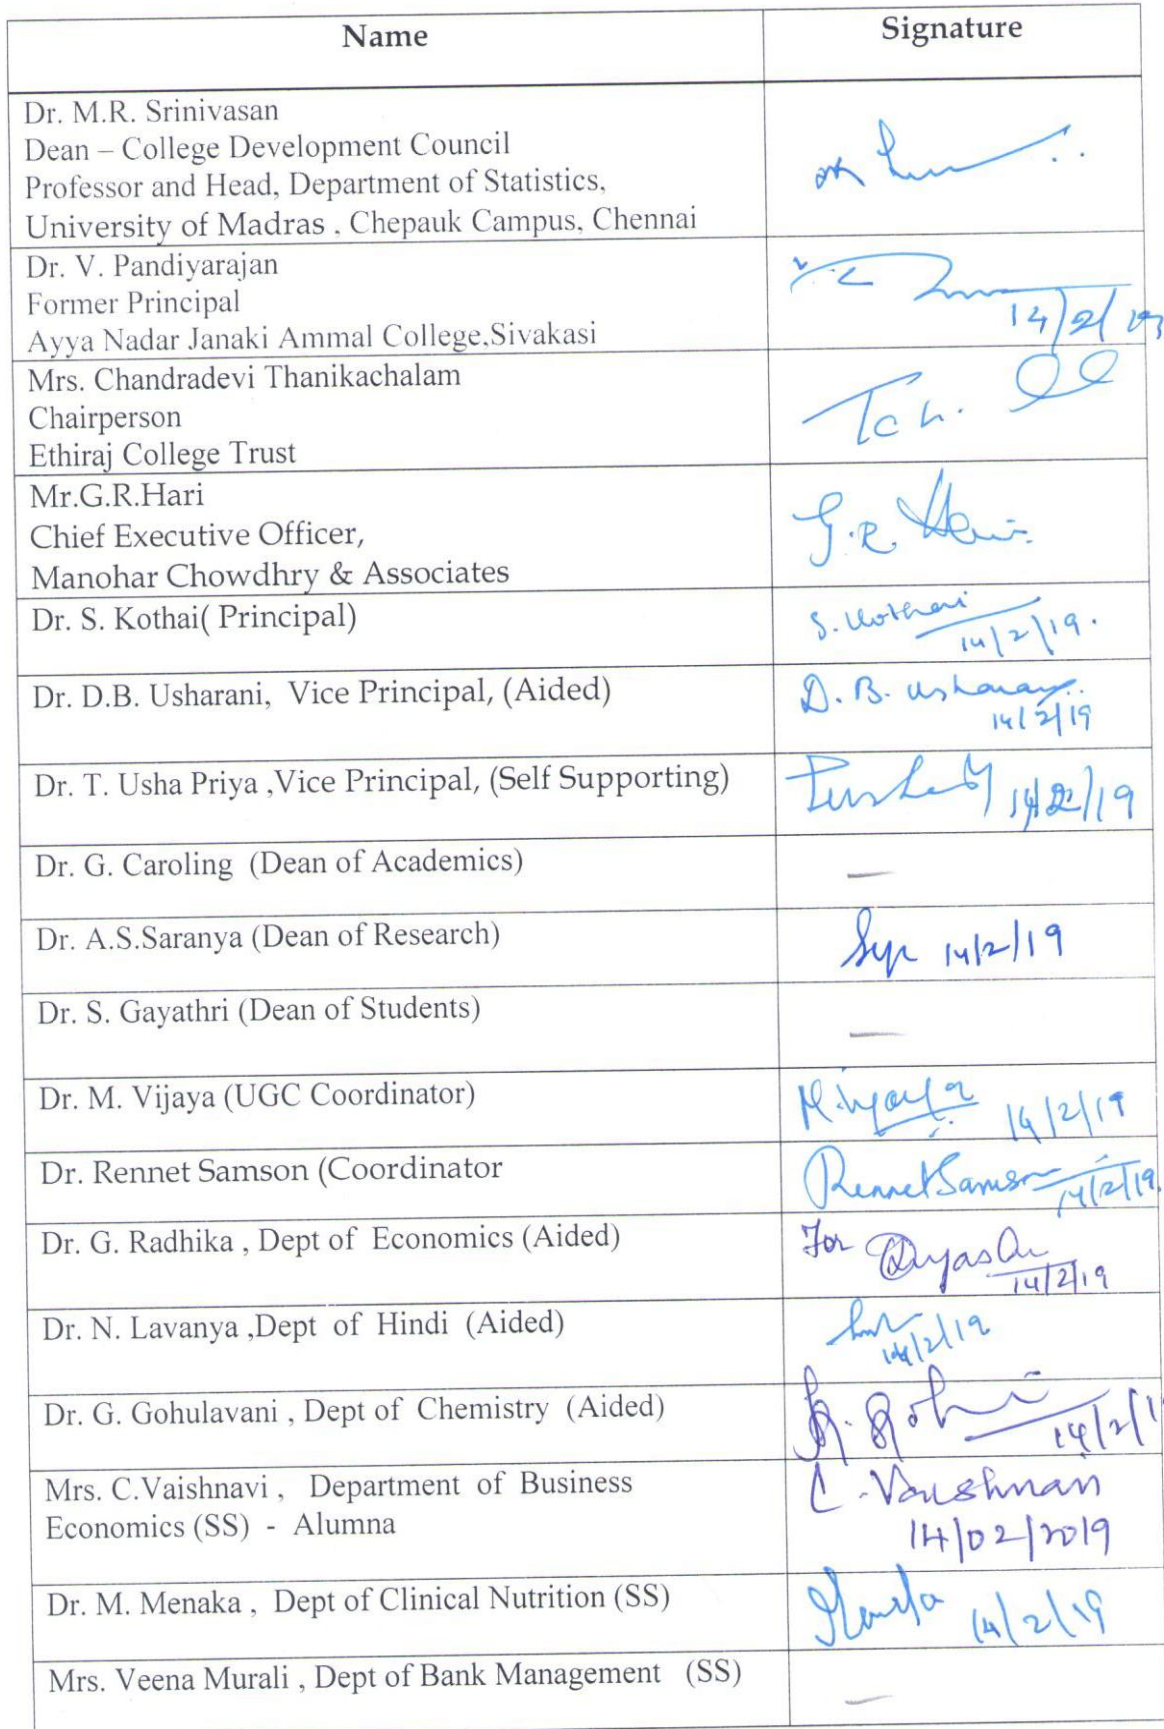 Name
Signature
Dr. M.R. Srinivasan
Dean – College Development Council
Professor and Head, Department of Statistics,
University of Madras , Chepauk Campus, Chennai
Dr. V. Pandiyarajan
Former Principal
Ayya Nadar Janaki Ammal College,Sivakasi
14/2/19
Mrs. Chandradevi Thanikachalam
Chairperson
Ethiraj College Trust
Mr.G.R.Hari
Chief Executive Officer,
Manohar Chowdhry & Associates
G.R. Hari
Dr. S. Kothai( Principal)
S. Kothai
14/2/19.
Dr. D.B. Usharani, Vice Principal, (Aided)
D. B. Usharani
14/2/19
Dr. T. Usha Priya ,Vice Principal, (Self Supporting)
14/2/19
Dr. G. Caroling (Dean of Academics)
—
Dr. A.S.Saranya (Dean of Research)
14/2/19
Dr. S. Gayathri (Dean of Students)
—
Dr. M. Vijaya (UGC Coordinator)
M. Vijaya 14/2/19
Dr. Rennet Samson (Coordinator
Rennet Samson 14/2/19.
Dr. G. Radhika , Dept of Economics (Aided)
For
14/2/19
Dr. N. Lavanya ,Dept of Hindi (Aided)
14/2/19
Dr. G. Gohulavani , Dept of Chemistry (Aided)
14/2/1
Mrs. C.Vaishnavi , Department of Business
Economics (SS) - Alumna
C. Vaishnavi
14/02/2019
Dr. M. Menaka , Dept of Clinical Nutrition (SS)
14/2/19
Mrs. Veena Murali , Dept of Bank Management (SS)
—